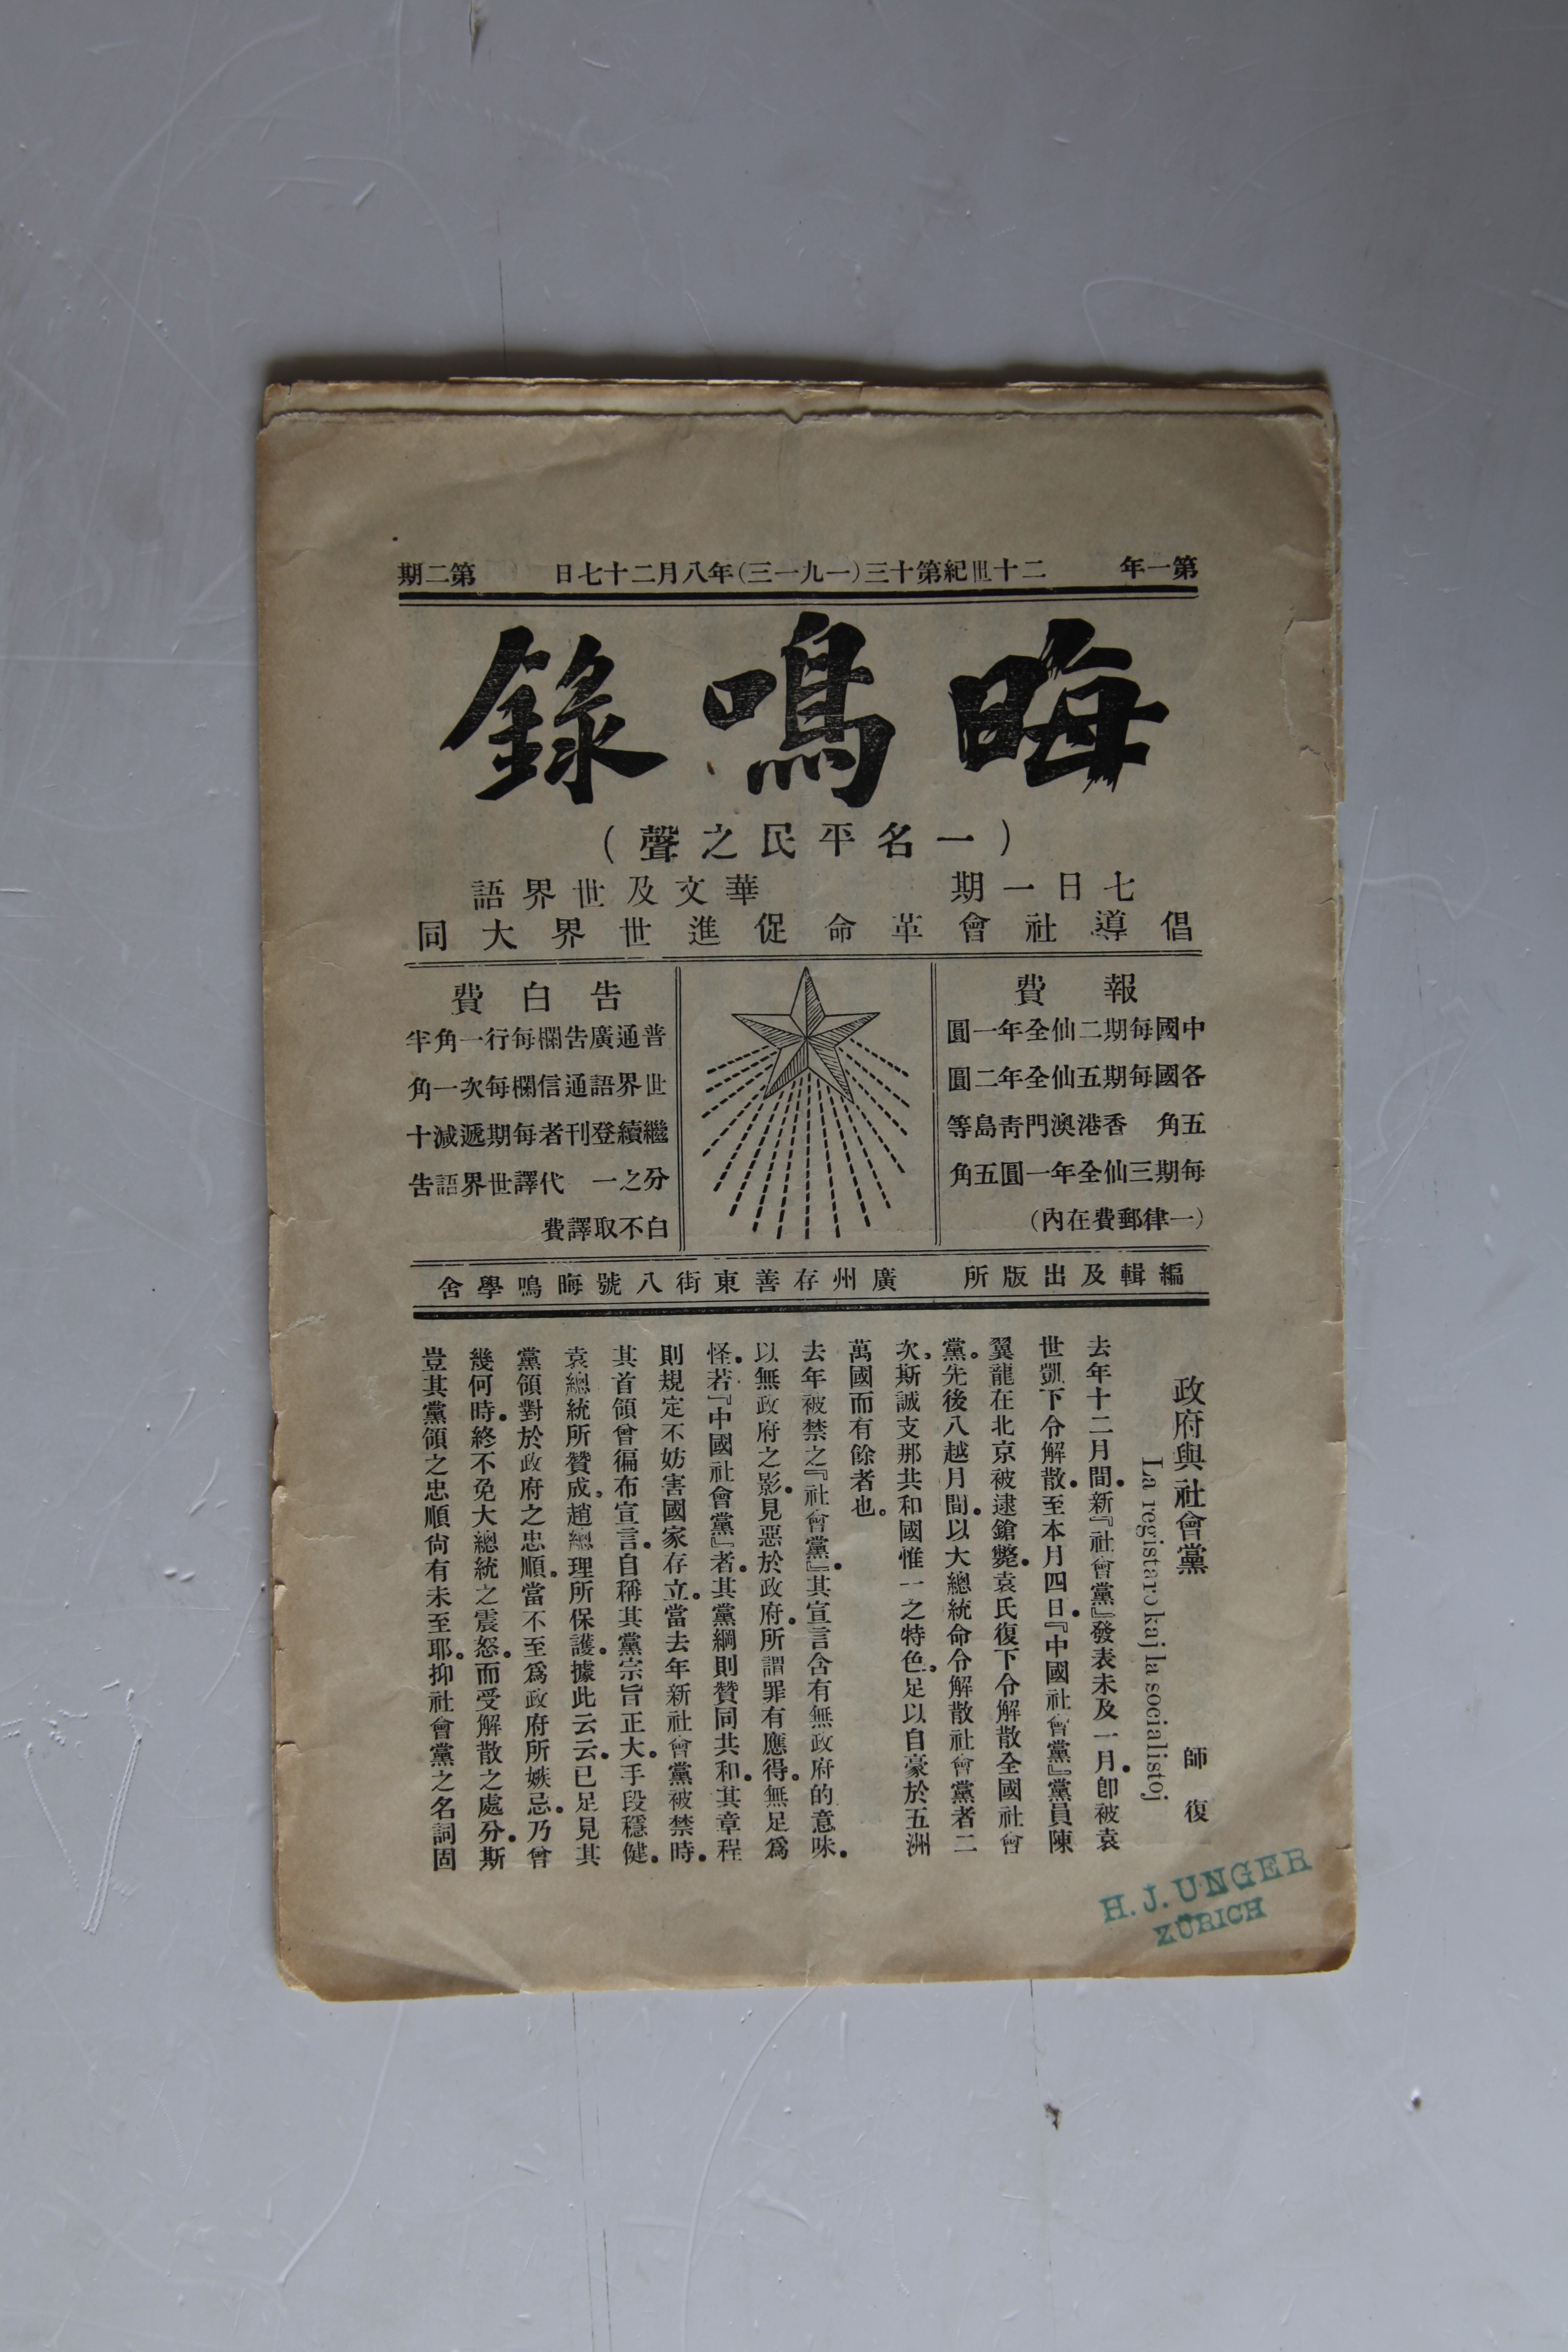 第一年 二十世紀第十三(一九一三)年八月二十七日 第二期
晦鳴錄
(一名平民之聲)
七日一期 華文及世界語
倡導社會革命促進世界大同
報費
中國每期二仙全年一圓
各國每期五仙全年二圓
五角 香港澳門靑島等
每期三仙全年一圓五角
(一律郵費在內)
告白費
普通廣告欄每行一角半
世界語通信欄每次一角
繼續登刊者每期遞減十
分之一 代譯世界語告
白不取譯費
編輯及出版所 廣州存善東街八號晦鳴學舍
政府與社會黨 師復
La registaro kaj la socialistoj
去年十二月間。新『社會黨』發表未及一月。卽被袁
世凱下令解散。至本月四日。『中國社會黨』黨員陳
翼龍在北京被逮鎗斃。袁氏復下令解散全國社會
黨。先後八越月間。以大總統命令解散社會黨者二
次。斯誠支那共和國惟一之特色。足以自豪於五洲
萬國而有餘者也。
去年被禁之『社會黨』。其宣言含有無政府的意味。
以無政府之影。見惡於政府。所謂罪有應得。無足爲
怪。若『中國社會黨』者。其黨綱則贊同共和。其章程
則規定不妨害國家存立。當去年新社會黨被禁時。
其首領曾徧布宣言。自稱其黨宗旨正大。手段穩健。
袁總統所贊成。趙總理所保護。據此云云。已足見其
黨領對於政府之忠順。當不至爲政府所嫉忌。乃曾
幾何時。終不免大總統之震怒。而受解散之處分。斯
豈其黨領之忠順尙有未至耶。抑社會黨之名詞固
H. J. UNGER
ZÜRICH